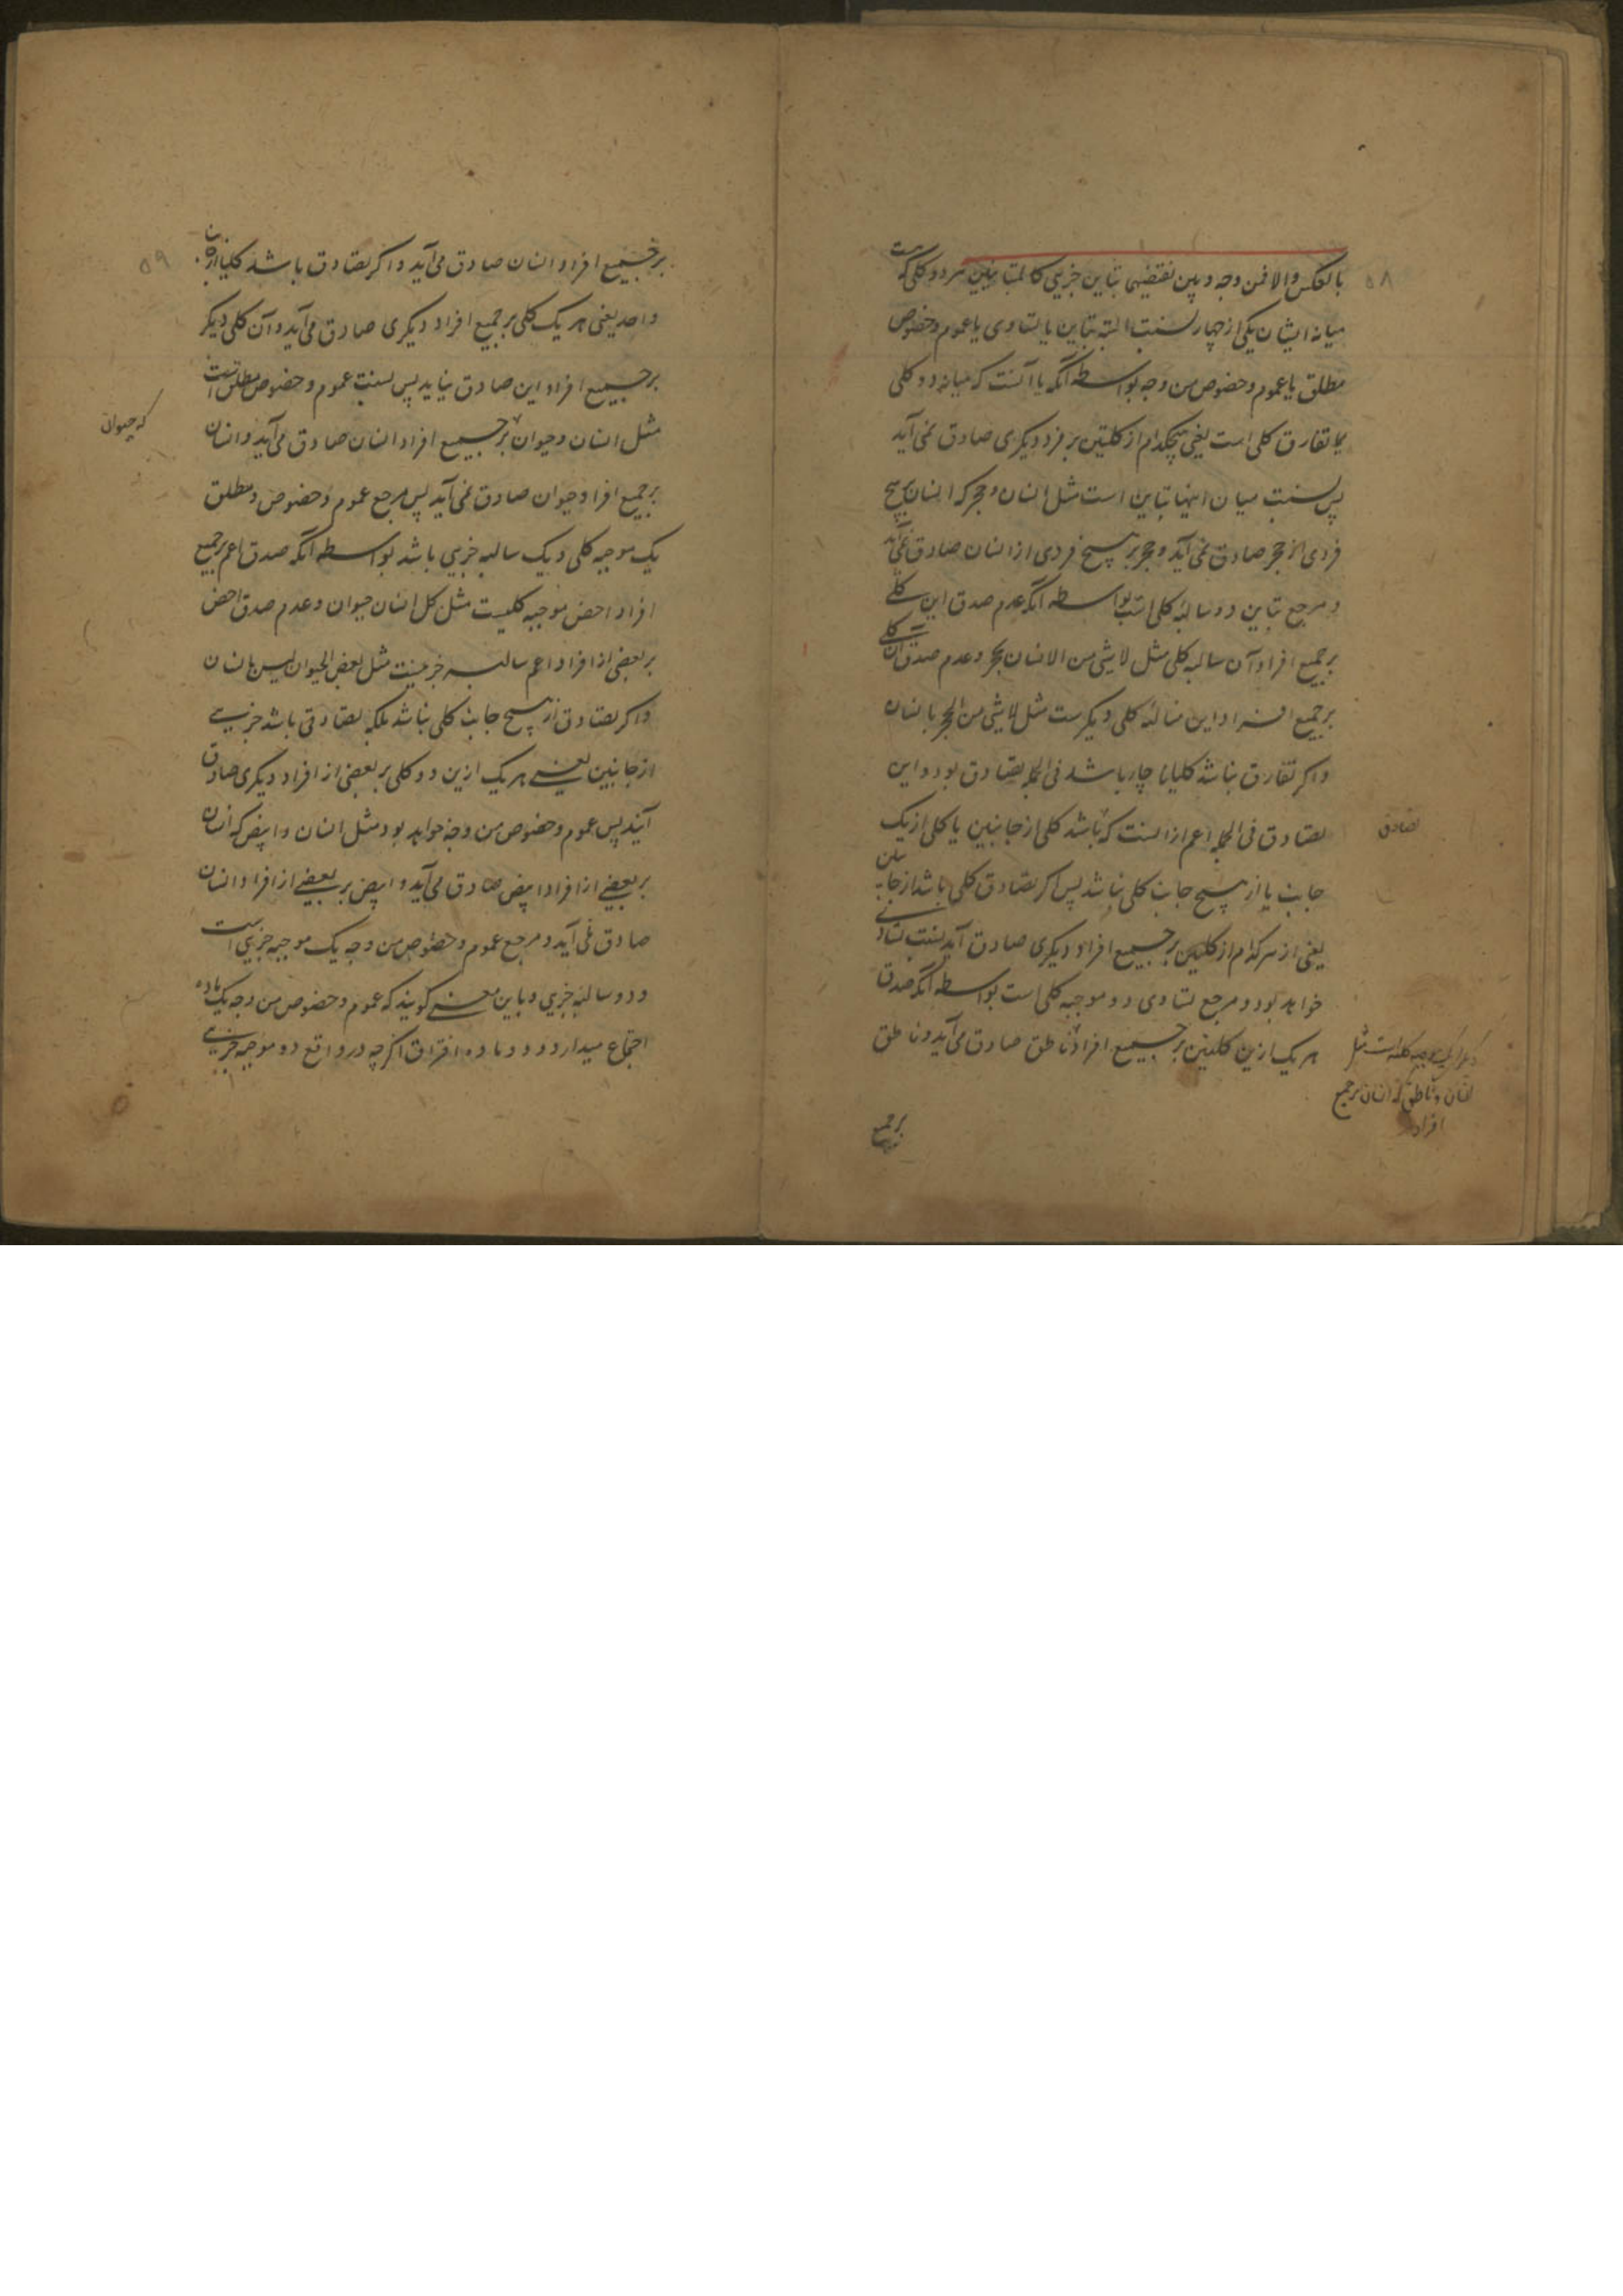 ۵۸
بالعکس والا فمن وجه و بین نقیضیهما تباین جزیی کالمتباینین هر دو کلی که هست
میانه ایشان یکی از چهار نسبت البته تباین یا تساوی یا عموم و خصوص
مطلق یا عموم و خصوص من وجه بواسطه آنکه یا آنست که میانه دو کلی
تفارق کلی است یعنی هیچکدام از کلیتین بر فرد دیگری صادق نمی آید
پس نسبت میان اینها تباین است مثل انسان و حجر که انسان بر هیچ
فردی از حجر صادق نمی آید و حجر بر هیچ فردی از انسان صادق نمی آید
و مرجع تباین دو سالبه کلی است بواسطه آنکه عدم صدق این کلی
بر جمیع افراد آن سالبه کلی مثل لا شی من الانسان بحجر و عدم صدق آن کلی
بر جمیع افراد این سالبه کلی دیگرست مثل لا شی من الحجر بانسان
و اگر تفارق نباشد کلیا ناچار باشد فی الجمله تصادق بود و این
تصادق فی الجمله اعم از انست که باشد کلی از جانبین یا کلی از یک
تصادق
جانب یا از هیچ جانب کلی نباشد پس اگر تصادق کلی باشد از جانبین
یعنی از هر کدام از کلیین بر جمیع افراد دیگری صادق آید نسبت تساوی
خواهد بود و مرجع تساوی دو موجبه کلی است بواسطه آنکه صدق
هر یک ازین کلیین بر جمیع افراد ناطق صادق می آید و ناطق
دیگر یک موجبه کلیه است مثل
انسان و ناطق که انسان بر جمیع
افراد
بر جمیع
۵۹
بر جمیع افراد انسان صادق می آید و اگر تصادق باشد کلیا از جانب
واحد یعنی هر یک کلی بر جمیع افراد دیگری صادق می آید و آن کلی دیگر
بر جمیع افراد این صادق نیاید پس نسبت عموم و خصوص مطلق است
مثل انسان و حیوان بر جمیع افراد انسان صادق می آید و انسان
که حیوان
بر جمیع افراد حیوان صادق نمی آید پس مرجع عموم و خصوص و مطلق
یک موجبه کلی و یک سالبه جزیی باشد بواسطه آنکه صدق اعم بر جمیع
افراد اخص موجبه کلیست مثل کل انسان حیوان و عدم صدق اخص
بر بعضی از افراد اعم سالبه جزییست مثل بعض الحیوان لیس بانسان
و اگر تصادق از هیچ جانب کلی نباشد بلکه تصادقی باشد جزیی
از جانبین یعنی هر یک ازین دو کلی بر بعضی از افراد دیگری صادق
آیند پس عموم و خصوص من وجه خواهد بود مثل انسان و ابیض که انسان
بر بعضی از افراد ابیض صادق می آید و ابیض بر بعضی از افراد انسان
صادق نمی آید و مرجع عموم و خصوص من وجه یک موجبه جزیی است
و دو سالبه جزیی و باین معنی گویند که عموم و خصوص من وجه یک ماده
اجتماع میدارد و دو ماده افتراق اگرچه در واقع دو موجبه جزیی